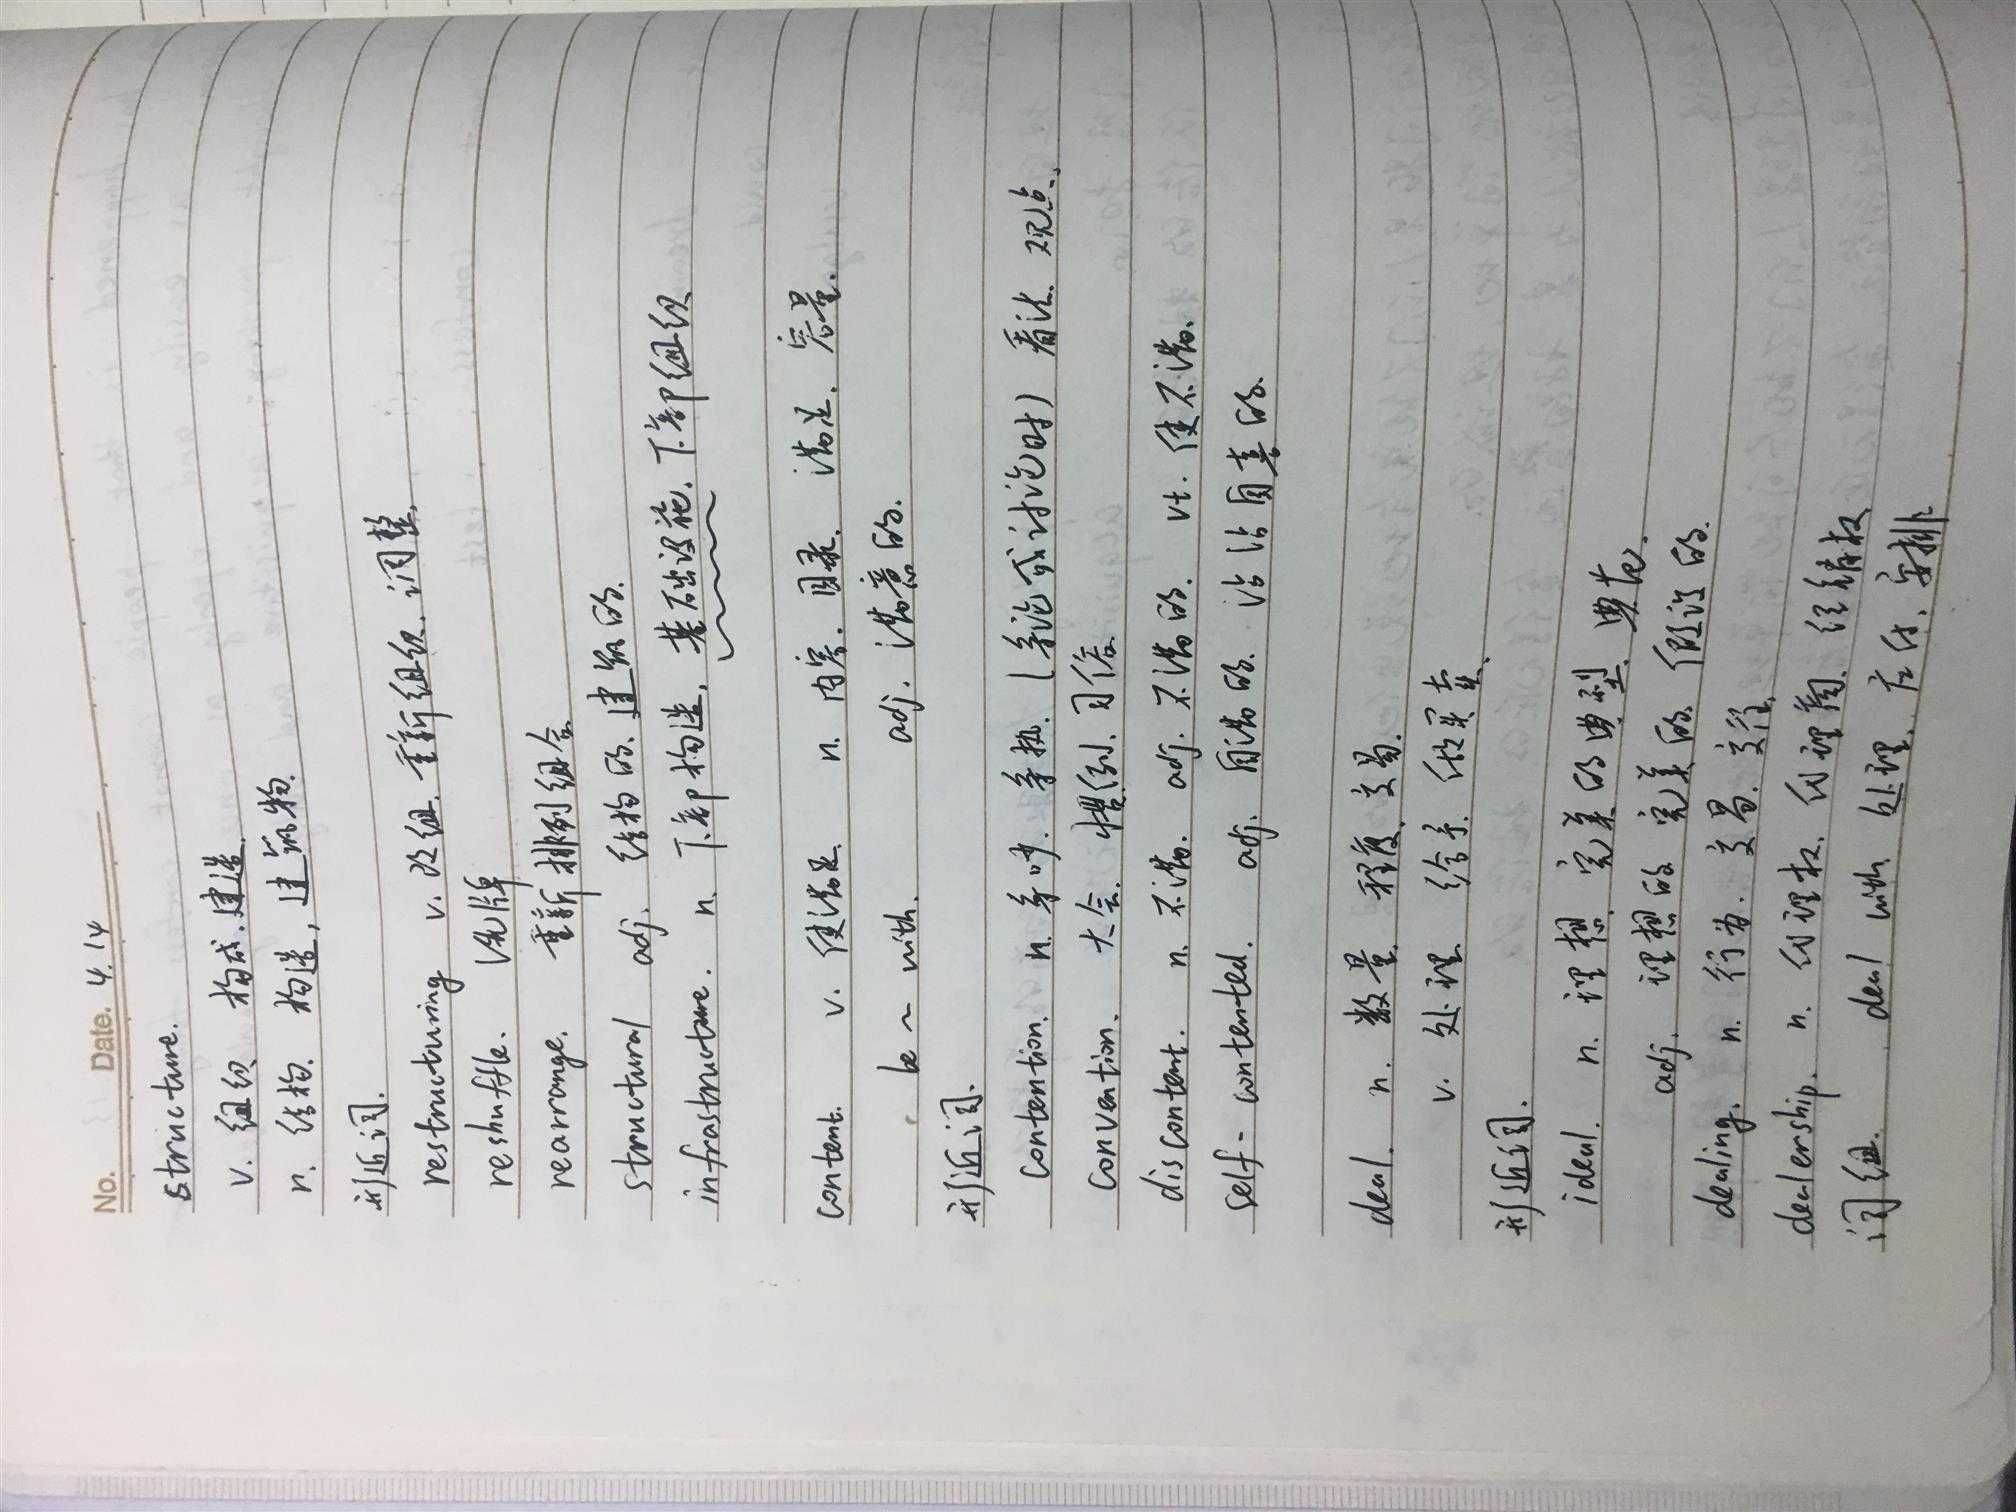 No. Date. 4.14
structure.
v. 组织 构成.建造.
n. 结构. 构造,建筑物.
形近词.
restructuring v. 改组.重新组织.调整.
reshuffle. 洗牌
rearrange. 重新排列组合
structural adj. 结构的.建筑的.
infrastructure. n. 下部构造.基础设施.下部组织
content. v. 使满足. n. 内容.目录. 满足. 容量.
be ~ with. adj. 满意的.
形近词.
contention. n. 争吵. 争执. (争论或讨论时) 看法. 观点.
convention. 大会. 惯例. 习俗
discontent. n. 不满. adj. 不满的. vt. 使不满.
self-contented. adj. 自满的. 沾沾自喜的.
deal. n. 数量 程度. 交易.
v. 处理 给予. 做买卖.
形近词.
ideal. n. 理想. 完美的典型. 典范.
adj. 理想的 完美的. 假设的.
dealing. n. 行为. 交易. 交往.
dealership. n. 代理权. 代理商. 经销权
词组. deal with. 处理. 应付. 安排